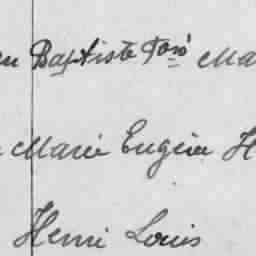 Baptiste
Marie Eugène H
Henri Louis